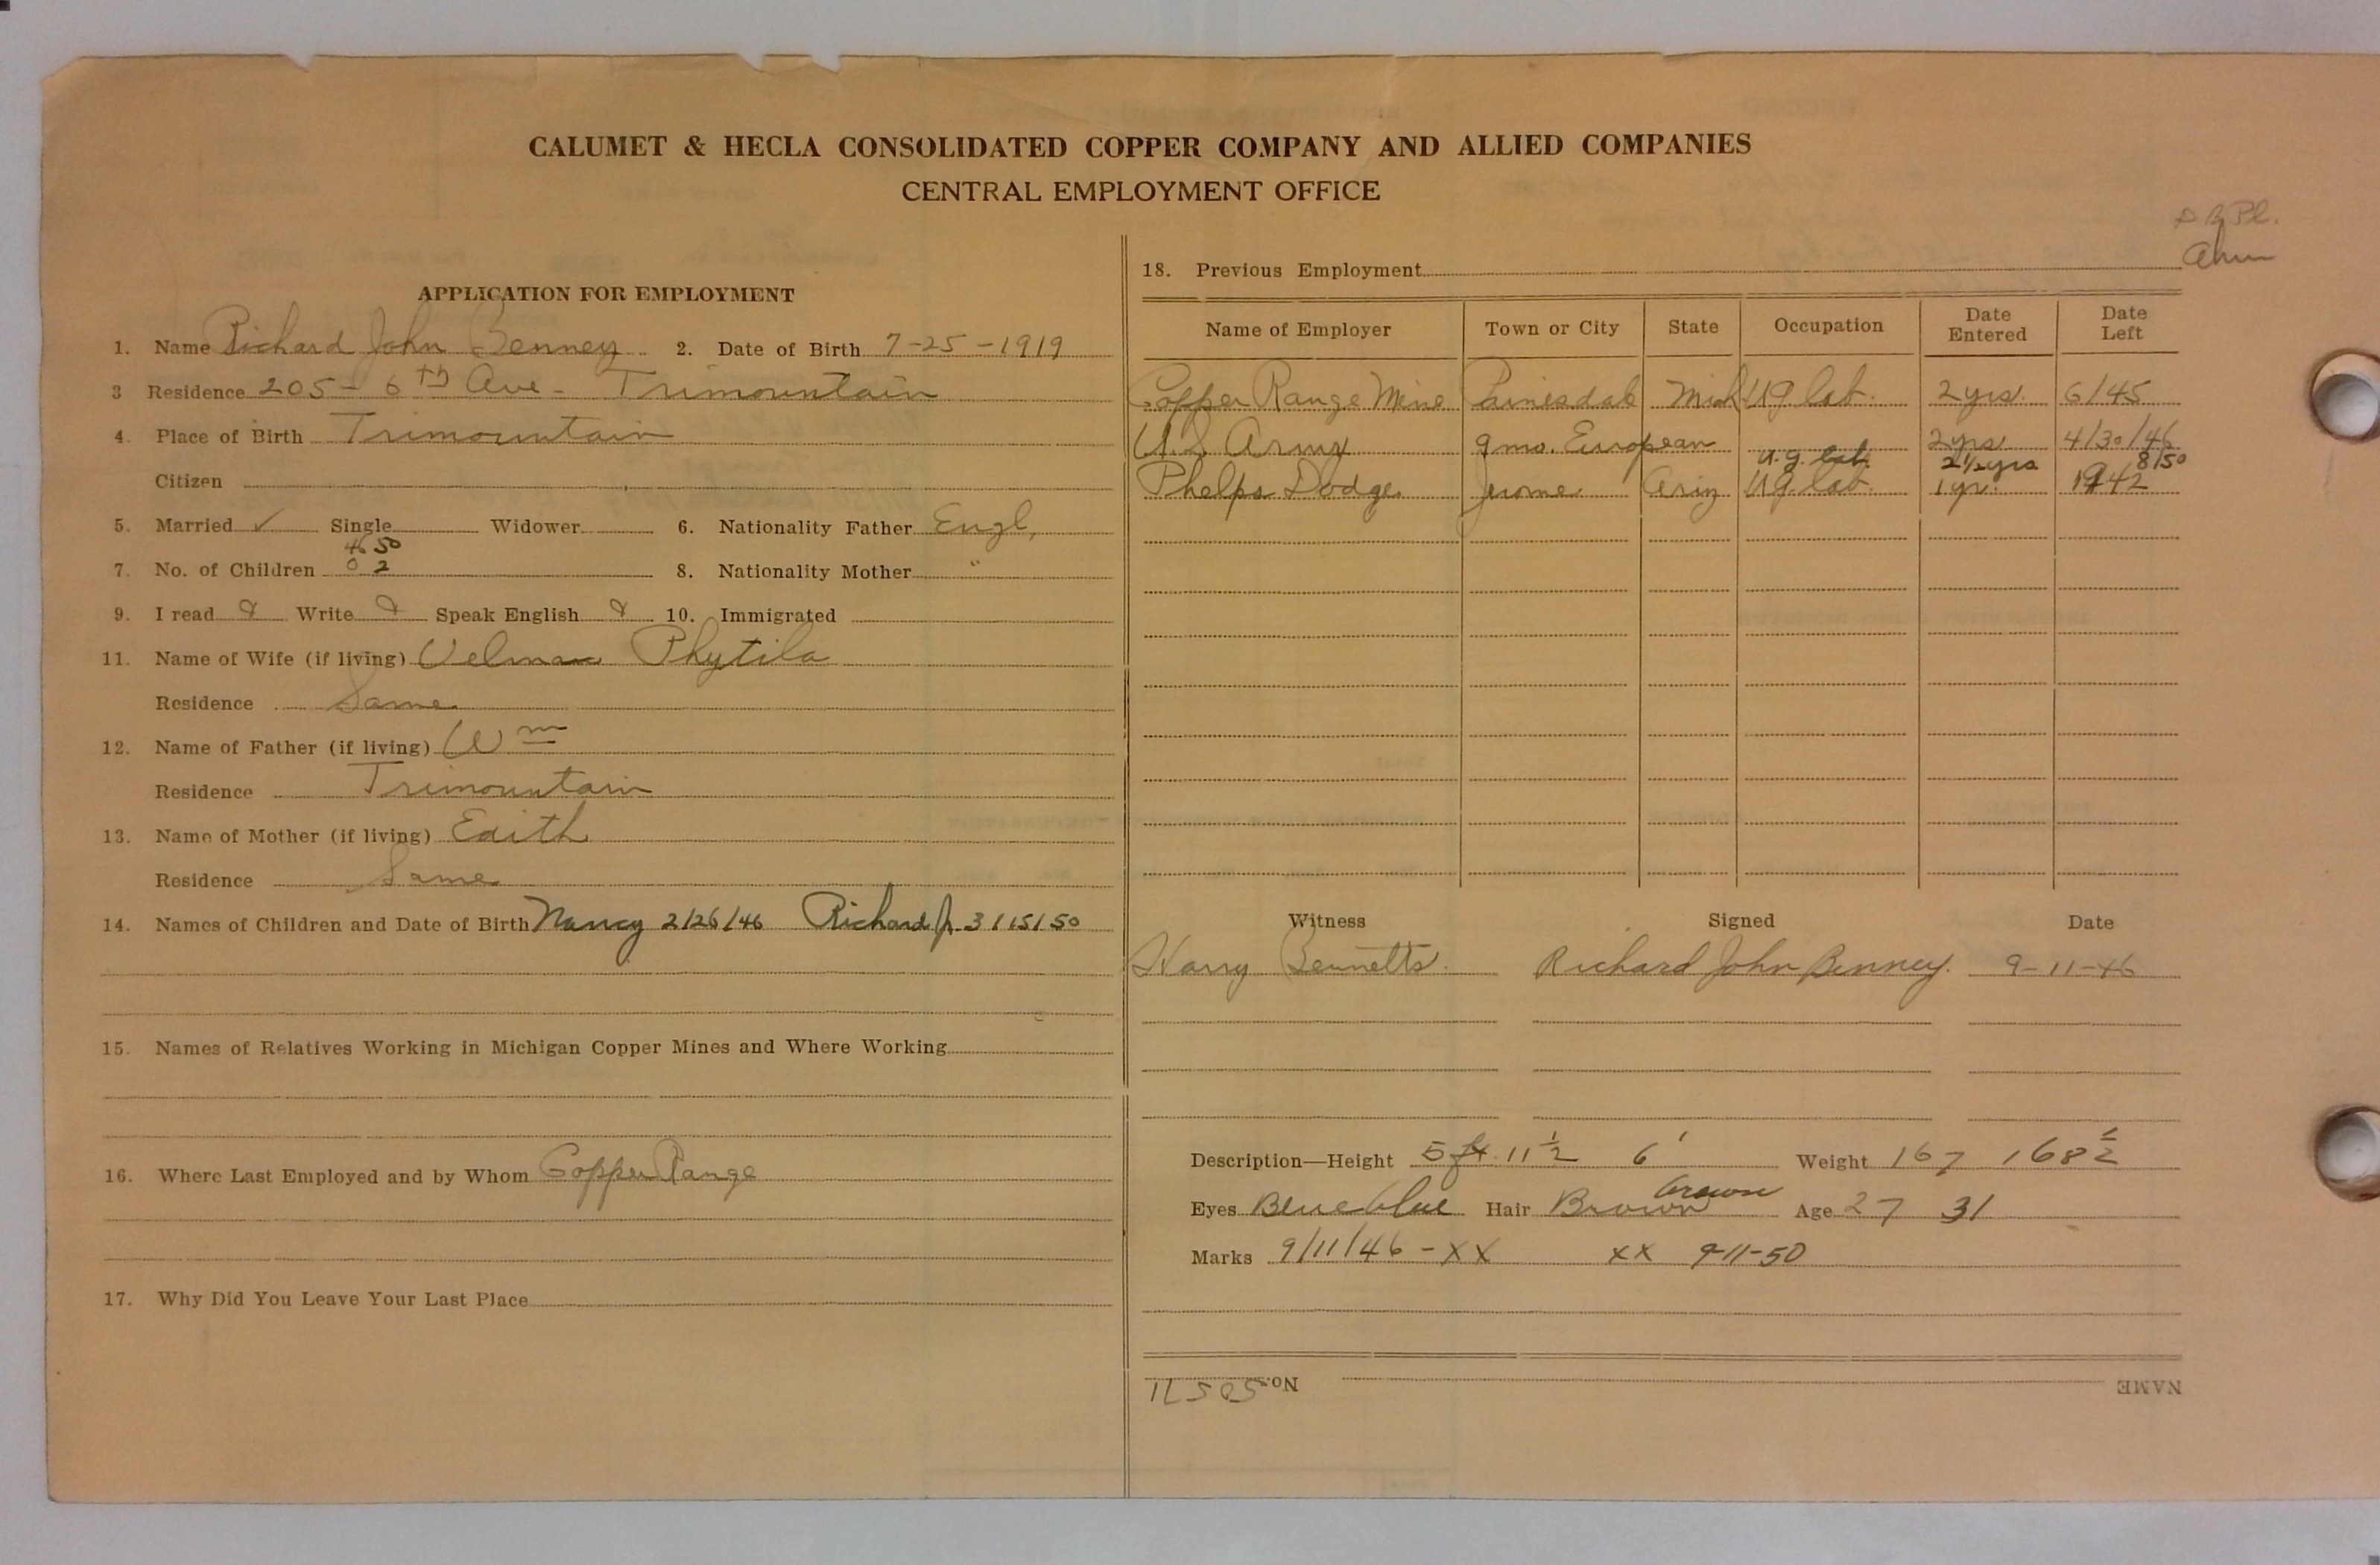 CALUMET & HECLA CONSOLIDATED COPPER COMPANY AND ALLIED COMPANIES
CENTRAL EMPLOYMENT OFFICE
APPLICATION FOR EMPLOYMENT
1. Name Richard John Benney 2. Date of Birth 7-25-1919
3 Residence 205- 6th Ave- Trimountain
4. Place of Birth Trimountain
Citizen
5. Married ✓ Single Widower 6. Nationality Father Engl,
46 50
7. No. of Children 0 2 8. Nationality Mother "
9. I read Write Speak English 10. Immigrated
11. Name of Wife (if living) Velma Phytila
Residence Same
12. Name of Father (if living) Wm
Residence Trimountain
13. Name of Mother (if living) Edith
Residence Same
14. Names of Children and Date of Birth Nancy 2/26/46 Richard Jr. 3/15/50
15. Names of Relatives Working in Michigan Copper Mines and Where Working
16. Where Last Employed and by Whom Copper Range
17. Why Did You Leave Your Last Place
18. Previous Employment
Name of Employer Town or City State Occupation Date Entered Date Left
Copper Range Mine Painesdale Mich UG lab. 2 yrs. 6/45
U.S Army 9 mo. European 2 yrs 4/30/46
u.g. lab. 2½ yrs 8/50
Phelps Dodge Jerome Ariz UG lab. 1 yr. 1942
Witness Signed Date
Harry Bennetts Richard John Benney. 9-11-46
Description—Height 5 ft. 11½ 6' Weight 167 168½
Eyes Blue blue Hair Brown brown Age 27 31
Marks 9/11/46 - XX XX 9-11-50
No. 
NAME